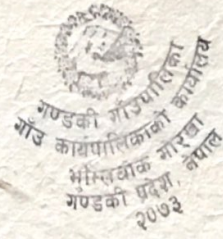 गण्डकी गाउँपालिका
गाँउ कार्यपालिकाको कार्यालय
भुम्लिचोक गोरखा
गण्डकी प्रदेश, नेपाल
२०७३